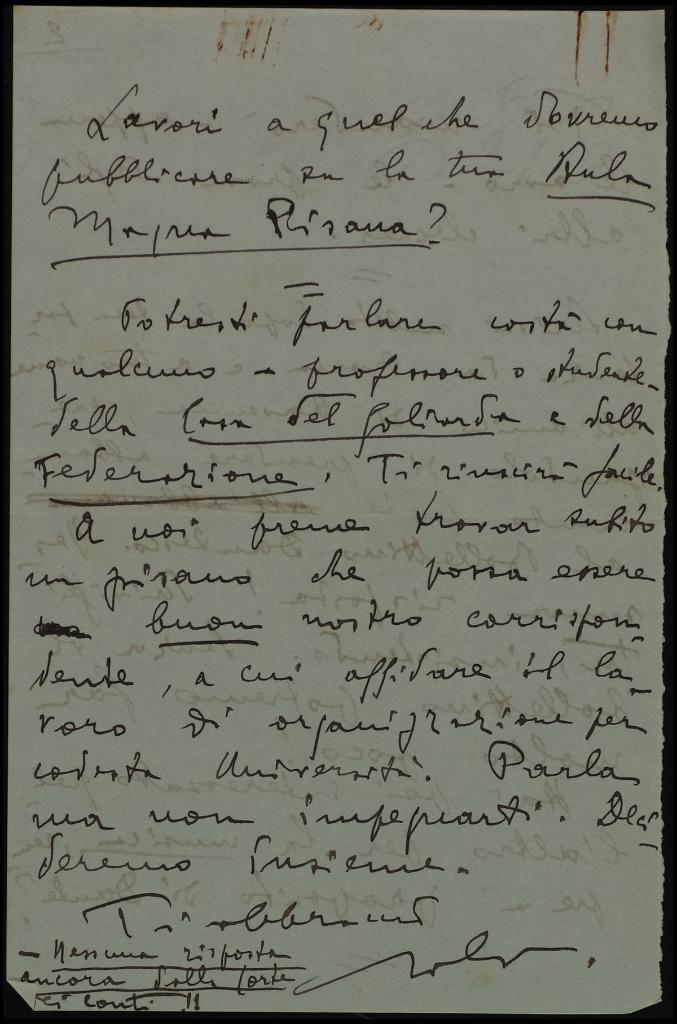 Lavori a quel che dovremo
pubblicare su la tua Aula
Magna Pisana?
=
Potresti parlare costà con
qualcuno - professore o studente -
della Casa del Goliardo e della
Federazione. Ti riuscirà facile.
A noi preme trovar subito
un pisano che possa essere
buon nostro corrispon-
dente, a cui affidare il la-
voro di organizzazione per
codesta Università. Parla
ma non impegnarti. Deci-
deremo insieme.
Ti abbraccio
- Nessuna risposta
ancora dalla Corte
dei conti!!